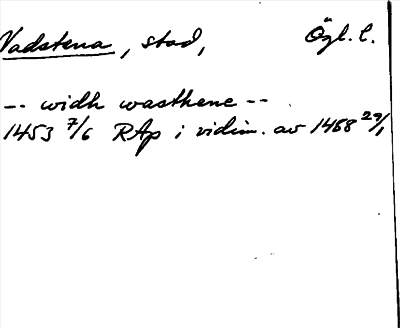 Vadstena, stad, Ögl. l.
-- widh wasthene --
1453 7/6 RAp i vidim. av 1468 29/1